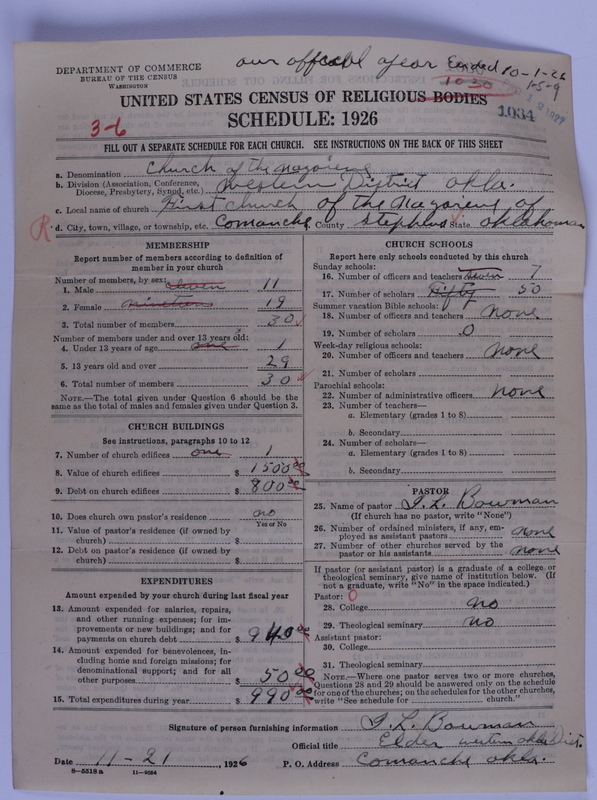 our official year Ended 10-1-26
DEPARTMENT OF COMMERCE
BUREAU OF THE CENSUS
WASHINGTON
1030
1-5-9
1034
UNITED STATES CENSUS OF RELIGIOUS BODIES
SCHEDULE: 1926
3-6
FILL OUT A SEPARATE SCHEDULE FOR EACH CHURCH. SEE INSTRUCTIONS ON THE BACK OF THIS SHEET
a. Denomination Church of the Nazarene
b. Division (Association, Conference, Diocese, Presbytery, Synod, etc.) Western District Okla.
c. Local name of church First Church of the Nazarene of
d. City, town, village, or township, etc. Comanche County Stephens State Oklahoma
MEMBERSHIP
Report number of members according to definition of
member in your church
Number of members, by sex:
1. Male eleven 11
2. Female nineteen 19
3. Total number of members 30
Number of members under and over 13 years old:
4. Under 13 years of age one 1
5. 13 years old and over 29
6. Total number of members 30
NOTE.—The total given under Question 6 should be the
same as the total of males and females given under Question 3.
CHURCH BUILDINGS
See instructions, paragraphs 10 to 12
7. Number of church edifices one 1
8. Value of church edifices $ 1500 00
9. Debt on church edifices $ 800 00
10. Does church own pastor's residence no
Yes or No
11. Value of pastor's residence (if owned by
church) $
12. Debt on pastor's residence (if owned by
church) $
EXPENDITURES
Amount expended by your church during last fiscal year
13. Amount expended for salaries, repairs,
and other running expenses; for im-
provements or new buildings; and for
payments on church debt $ 940 00
14. Amount expended for benevolences, in-
cluding home and foreign missions; for
denominational support; and for all
other purposes $ 50 00
15. Total expenditures during year $ 990 00
CHURCH SCHOOLS
Report here only schools conducted by this church
Sunday schools:
16. Number of officers and teachers 7
17. Number of scholars Fifty 50
Summer vacation Bible schools:
18. Number of officers and teachers none
19. Number of scholars 0
Week-day religious schools:
20. Number of officers and teachers none
21. Number of scholars
Parochial schools:
22. Number of administrative officers none
23. Number of teachers—
a. Elementary (grades 1 to 8)
b. Secondary
24. Number of scholars—
a. Elementary (grades 1 to 8)
b. Secondary
PASTOR
25. Name of pastor I. L. Bowman
(If church has no pastor, write "None")
26. Number of ordained ministers, if any, em-
ployed as assistant pastors none
27. Number of other churches served by the
pastor or his assistants none
If pastor (or assistant pastor) is a graduate of a college or
theological seminary, give name of institution below. (If
not a graduate, write "No" in the space indicated.)
Pastor: 0
28. College no
29. Theological seminary no
Assistant pastor:
30. College
31. Theological seminary
NOTE.—Where one pastor serves two or more churches,
Questions 28 and 29 should be answered only on the schedule
for one of the churches; on the schedules for the other churches,
write "See schedule for church."
Signature of person furnishing information I. L. Bowman
Official title Elder western okla Dist.
Date 11-21, 1926 P. O. Address Comanche okla.
8—5518 a 11—9034